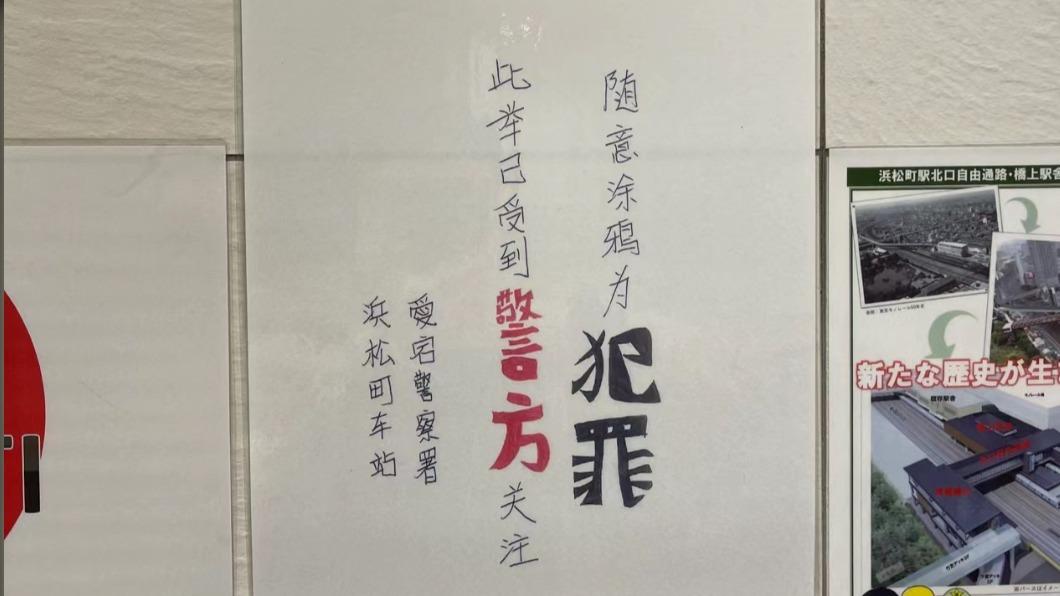 随意涂鸦为犯罪
此举己受到警方关注
愛宕警察署
浜松町车站
浜松町駅北口自由通路・橋上駅舎
新たな歴史が生